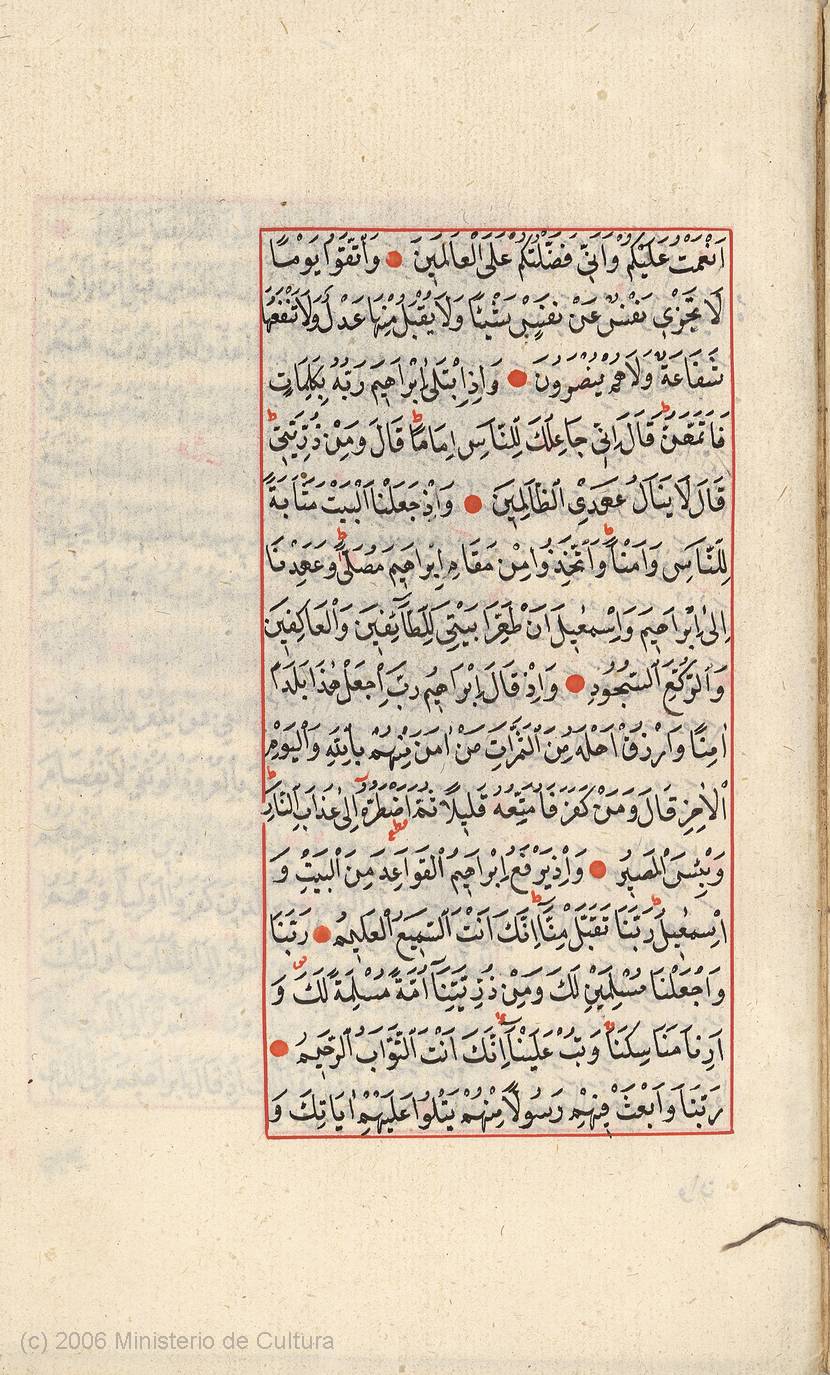 اَنْعَمْتُ عَلَيْكُمْ وَاَنّ۪ي فَضَّلْتُكُمْ عَلَى الْعَالَم۪ينَ ● وَاتَّقُوا يَوْمًا
لَا تَجْز۪ي نَفْسٌ عَنْ نَفْسٍ شَيْئًا وَلَا يُقْبَلُ مِنْهَا عَدْلٌ وَلَا تَنْفَعُهَا
شَفَاعَةٌ وَلَا هُمْ يُنْصَرُونَ ● وَاِذِ ابْتَلٰى اِبْرٰه۪يمَ رَبُّهُ بِكَلِمَاتٍ
فَاَتَمَّهُنَّ ط قَالَ اِنّ۪ي جَاعِلُكَ لِلنَّاسِ اِمَامًا ط قَالَ وَمِنْ ذُرِّيَّت۪ي ط
قَالَ لَا يَنَالُ عَهْدِي الظَّالِم۪ينَ ● وَاِذْ جَعَلْنَا الْبَيْتَ مَثَابَةً
لِلنَّاسِ وَاَمْنًا ط وَاتَّخِذُوا مِنْ مَقَامِ اِبْرٰه۪يمَ مُصَلًّى ط وَعَهِدْنَا
اِلٰى اِبْرٰه۪يمَ وَاِسْمٰع۪يلَ اَنْ طَهِّرَا بَيْتِيَ لِلطَّٓائِف۪ينَ وَالْعَاكِف۪ينَ
وَالرُّكَّعِ السُّجُودِ ● وَاِذْ قَالَ اِبْرٰه۪يمُ رَبِّ اجْعَلْ هٰذَا بَلَدًا
اٰمِنًا وَارْزُقْ اَهْلَهُ مِنَ الثَّمَرَاتِ مَنْ اٰمَنَ مِنْهُمْ بِاللّٰهِ وَالْيَوْمِ
الْاٰخِرِ ط قَالَ وَمَنْ كَفَرَ فَاُمَتِّعُهُ قَل۪يلًا ثُمَّ اَضْطَرُّهُٓ اِلٰى عَذَابِ النَّارِ ط
وَبِئْسَ الْمَص۪يرُ ● وَاِذْ يَرْفَعُ اِبْرٰه۪يمُ الْقَوَاعِدَ مِنَ الْبَيْتِ وَ
اِسْمٰع۪يلُ ط رَبَّنَا تَقَبَّلْ مِنَّا ط اِنَّكَ اَنْتَ السَّم۪يعُ الْعَل۪يمُ ● رَبَّنَا
وَاجْعَلْنَا مُسْلِمَيْنِ لَكَ وَمِنْ ذُرِّيَّتِنَٓا اُمَّةً مُسْلِمَةً لَكَ وَ
اَرِنَا مَنَاسِكَنَا وَتُبْ عَلَيْنَا اِنَّكَ اَنْتَ التَّوَّابُ الرَّح۪يمُ ●
رَبَّنَا وَابْعَثْ ف۪يهِمْ رَسُولًا مِنْهُمْ يَتْلُوا عَلَيْهِمْ اٰيَاتِكَ وَ
(c) 2006 Ministerio de Cultura